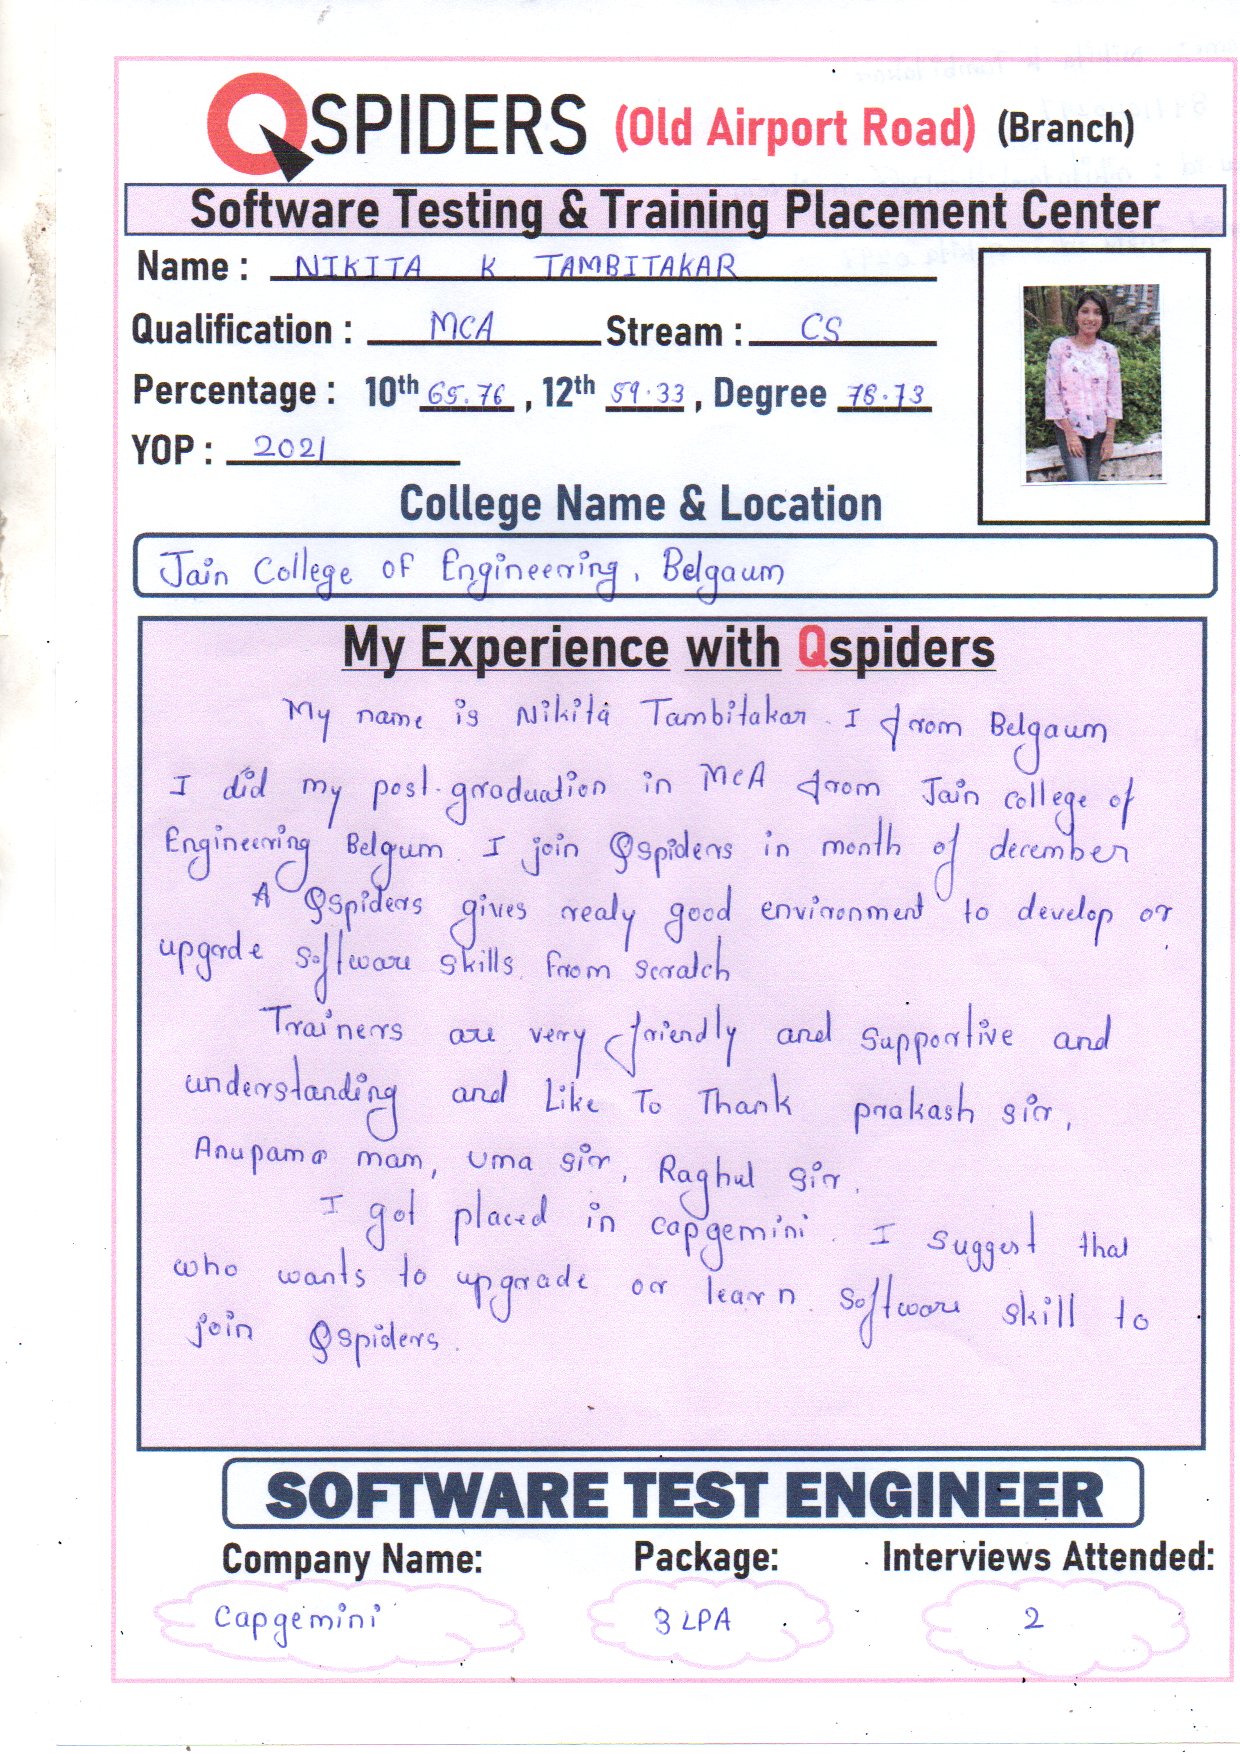 QSPIDERS (Old Airport Road) (Branch)
Software Testing & Training Placement Center
Name : NIKITA K TAMBITAKAR
Qualification : MCA Stream : CS
Percentage : 10th 65.76 , 12th 59.33 , Degree 78.73
YOP : 2021
College Name & Location
Jain College of Engineering, Belgaum
My Experience with Qspiders
My name is Nikita Tambitakar. I from Belgaum
I did my post-graduation in MCA from Jain college of
Engineering Belgum. I join Qspiders in month of december
A Qspiders gives realy good environment to develop or
upgrde software skills from scratch
Trainers are very friendly and supportive and
understanding and Like To Thank prakash sir,
Anupama mam, uma sir, Raghul sir.
I got placed in capgemini. I suggest that
who wants to upgrade or learn software skill to
join Qspiders.
SOFTWARE TEST ENGINEER
Company Name: Package: Interviews Attended:
Capgemini 3 LPA 2